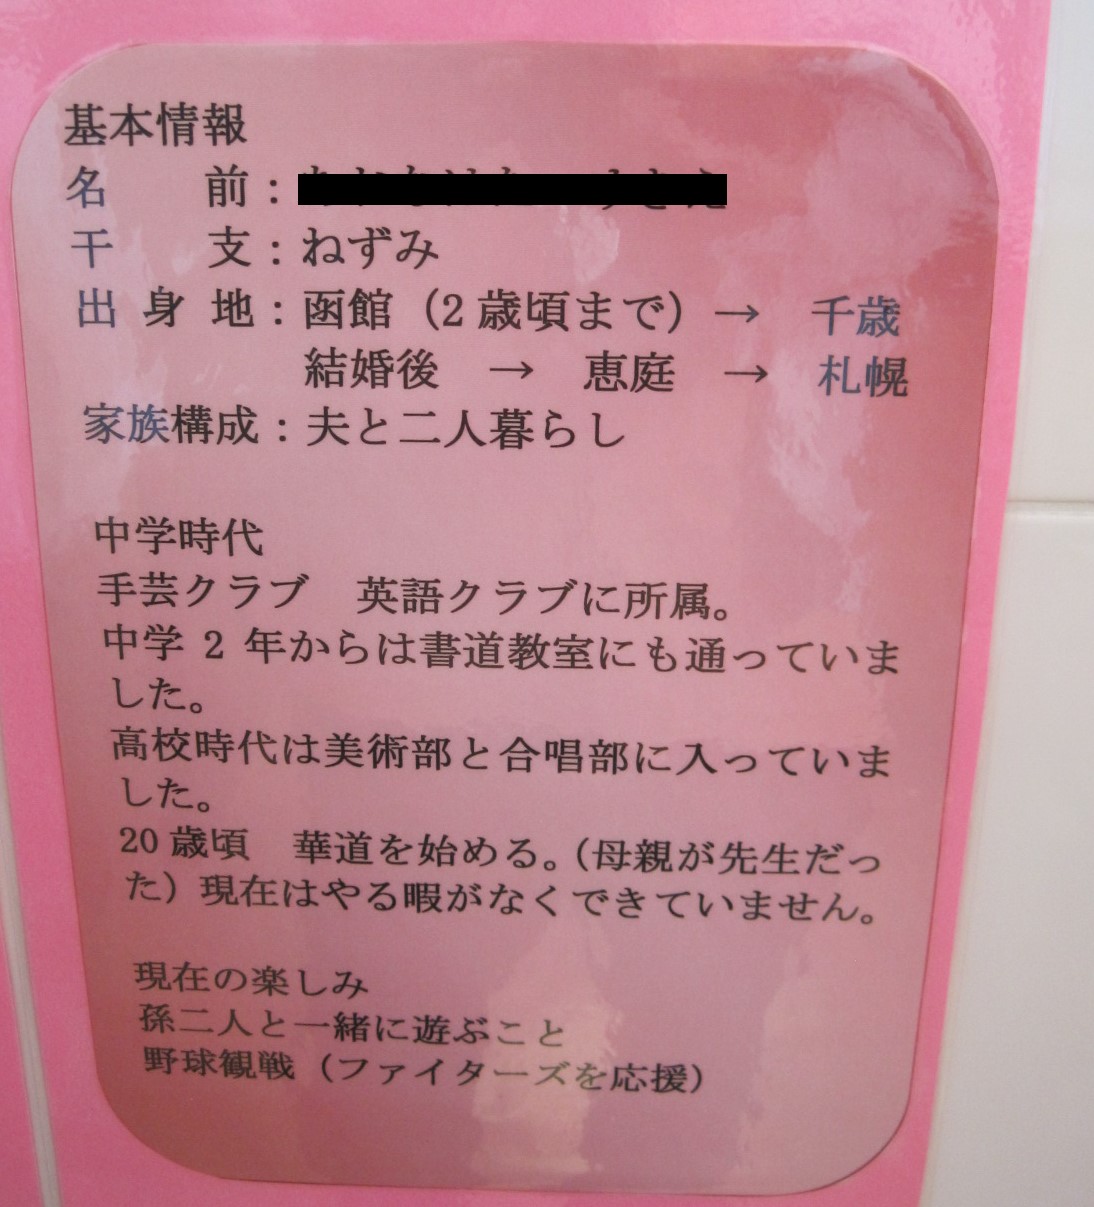 基本情報
名　前：
干　支：ねずみ
出 身 地：函館（2歳頃まで）→　千歳
結婚後　→　恵庭　→　札幌
家族構成：夫と二人暮らし
中学時代
手芸クラブ　英語クラブに所属。
中学 2 年からは書道教室にも通っていま
した。
高校時代は美術部と合唱部に入っていま
した。
20 歳頃　華道を始める。（母親が先生だっ
た）現在はやる暇がなくできていません。
現在の楽しみ
孫二人と一緒に遊ぶこと
野球観戦（ファイターズを応援）